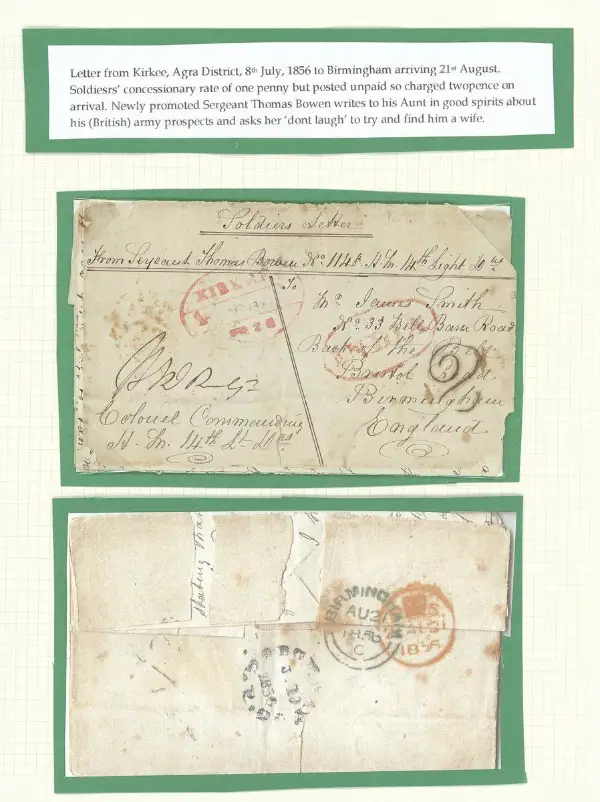 Letter from Kirkee, Agra District, 8th July, 1856 to Birmingham arriving 21st August.
Soldiesrs' concessionary rate of one penny but posted unpaid so charged twopence on
arrival. Newly promoted Sergeant Thomas Bowen writes to his Aunt in good spirits about
his (British) army prospects and asks her 'dont laugh' to try and find him a wife.
Soldiers Letter
From Serjeant Thomas Bowen No. 1148 H.M. 14th Light Dns
KIRKEE
To
Mr. James Smith
No. 33 Bell Barn Road
Back of the Bell
Bristol Road
Birmingham
England
2
Colonel Commanding
H.M. 14th Lt Dns
stating that
BIRMINGHAM
AU 21
1856
C
1856